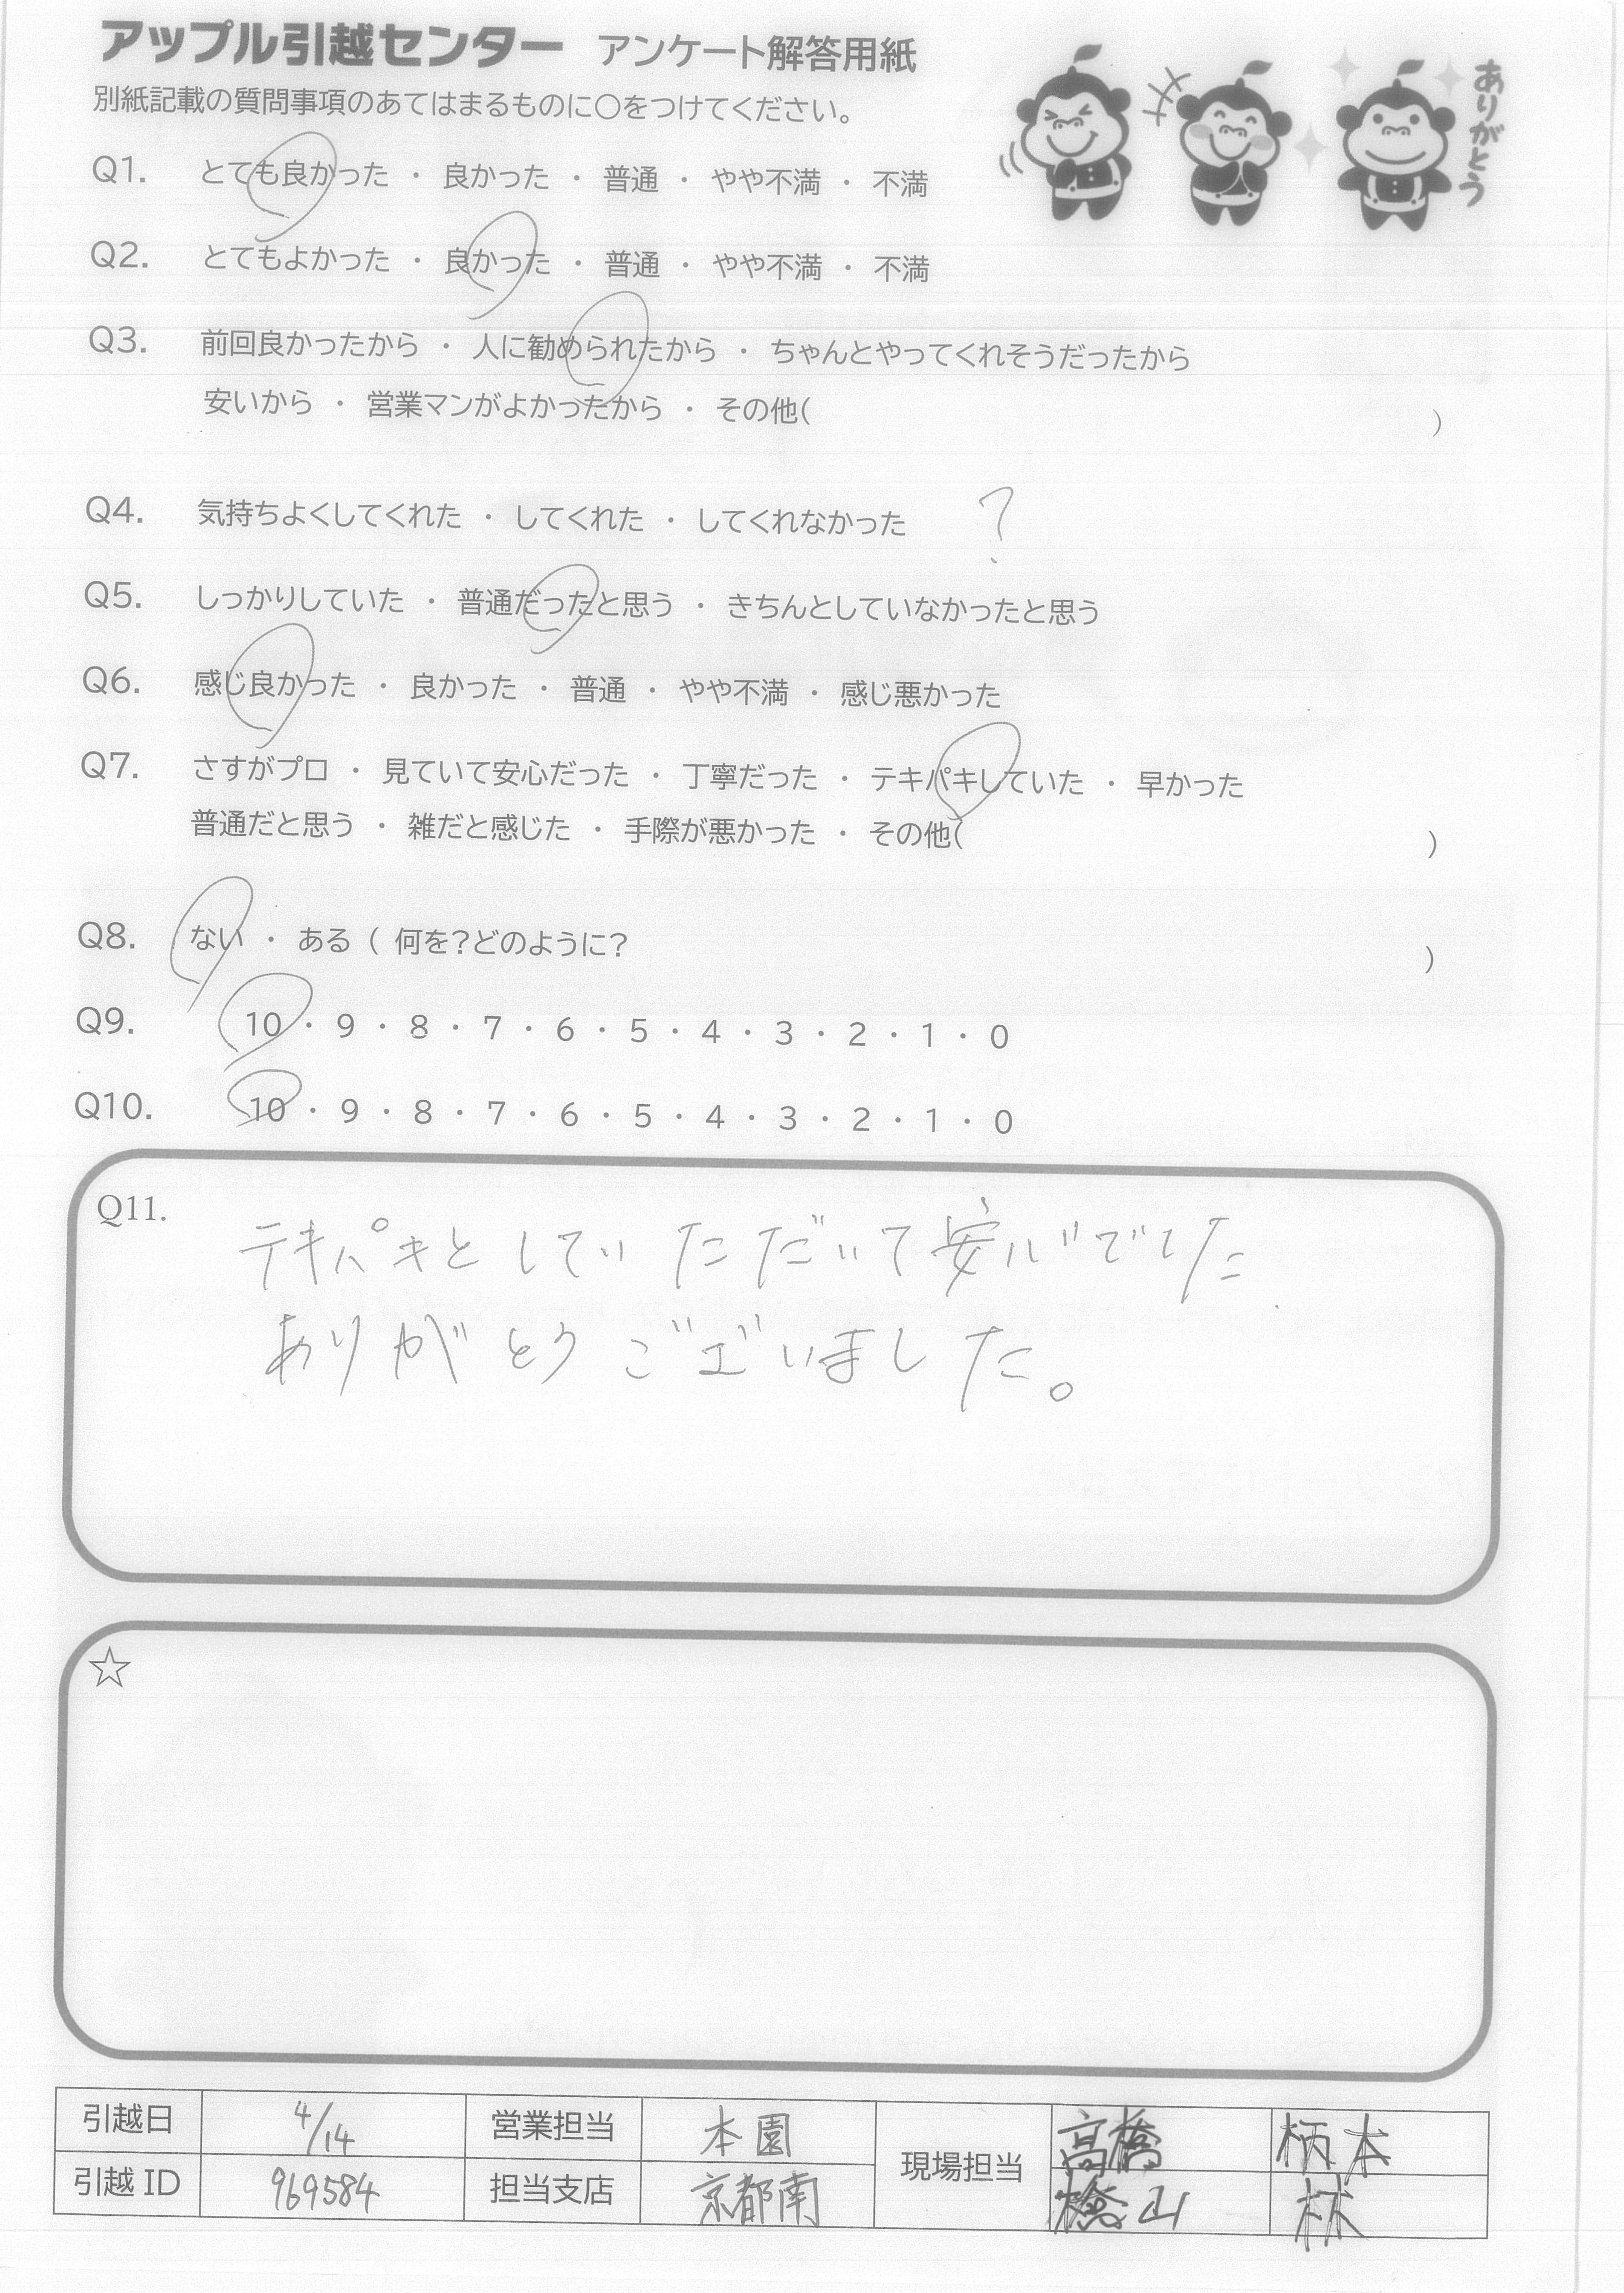 アップル引越センター アンケート解答用紙
別紙記載の質問事項のあてはまるものに○をつけてください。
ありがとう
Q1. とても良かった ・ 良かった ・ 普通 ・ やや不満 ・ 不満
Q2. とてもよかった ・ 良かった ・ 普通 ・ やや不満 ・ 不満
Q3. 前回良かったから ・ 人に勧められたから ・ ちゃんとやってくれそうだったから
安いから ・ 営業マンがよかったから ・ その他( )
Q4. 気持ちよくしてくれた ・ してくれた ・ してくれなかった ?
Q5. しっかりしていた ・ 普通だったと思う ・ きちんとしていなかったと思う
Q6. 感じ良かった ・ 良かった ・ 普通 ・ やや不満 ・ 感じ悪かった
Q7. さすがプロ ・ 見ていて安心だった ・ 丁寧だった ・ テキパキしていた ・ 早かった
普通だと思う ・ 雑だと感じた ・ 手際が悪かった ・ その他( )
Q8. ない ・ ある ( 何を?どのように? )
Q9. 10 ・ 9 ・ 8 ・ 7 ・ 6 ・ 5 ・ 4 ・ 3 ・ 2 ・ 1 ・ 0
Q10. 10 ・ 9 ・ 8 ・ 7 ・ 6 ・ 5 ・ 4 ・ 3 ・ 2 ・ 1 ・ 0
Q11.
テキパキとしていただいて安心でした
ありがとうございました。
☆
引越日 4/14 営業担当 本園 現場担当 高橋 柄本
引越ID 969584 担当支店 京都南 檜山 林